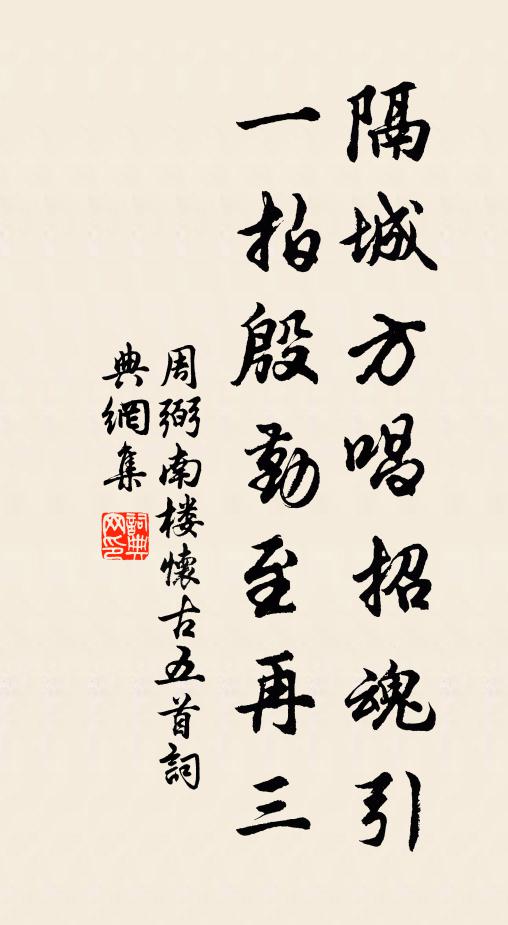 隔城方唱招魂引
一拍殷勤至再三
周弼南楼懷古五首詞
典網集
詞典网印